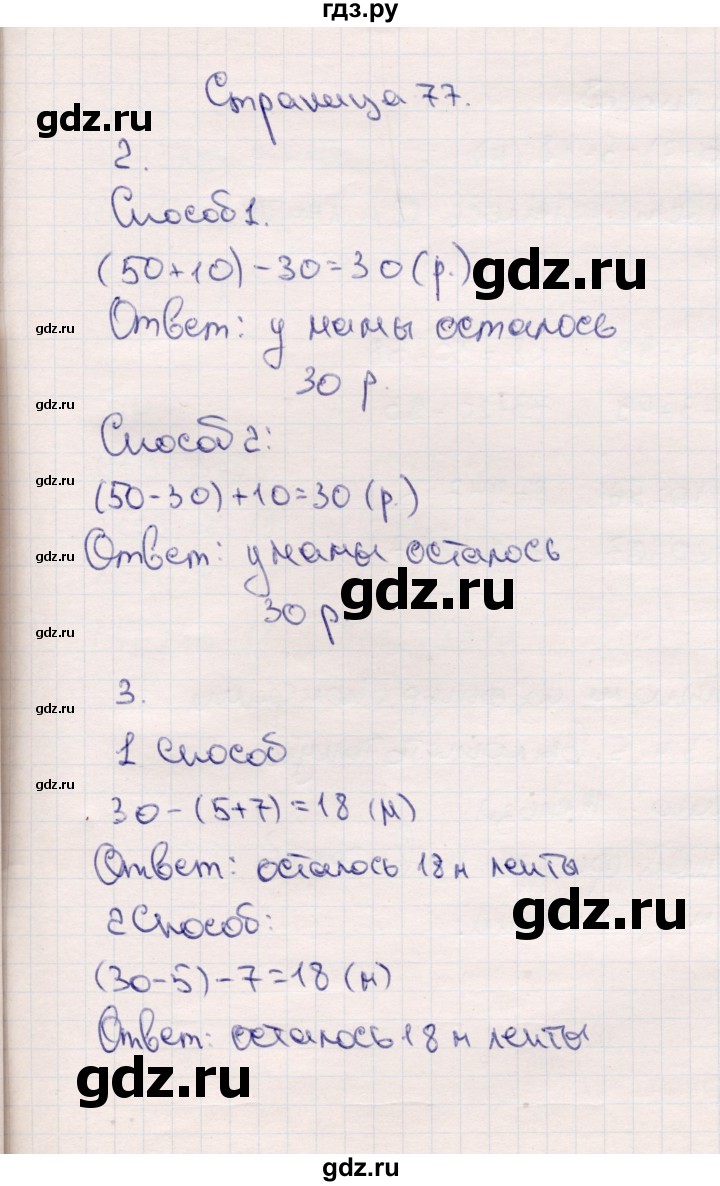 гдз.ру
Страница 77.
gdz.ru
2.
Способ 1.
(50+10)-30=30(р.)
gdz.ru
Ответ: у мамы осталось
gdz.ru
30 р.
gdz.ru
Способ 2:
gdz.ru
(50-30)+10=30 (р.)
Ответ: у мамы осталось
gdz.ru
30 р
gdz.ru
gdz.ru
3.
gdz.ru
1 способ
gdz.ru
30-(5+7)=18 (м)
Ответ: осталось 18 м ленты
2 Способ:
gdz.ru
(30-5)-7=18 (м)
Ответ: осталось 18 м ленты
gdz.ru
gdz.ru